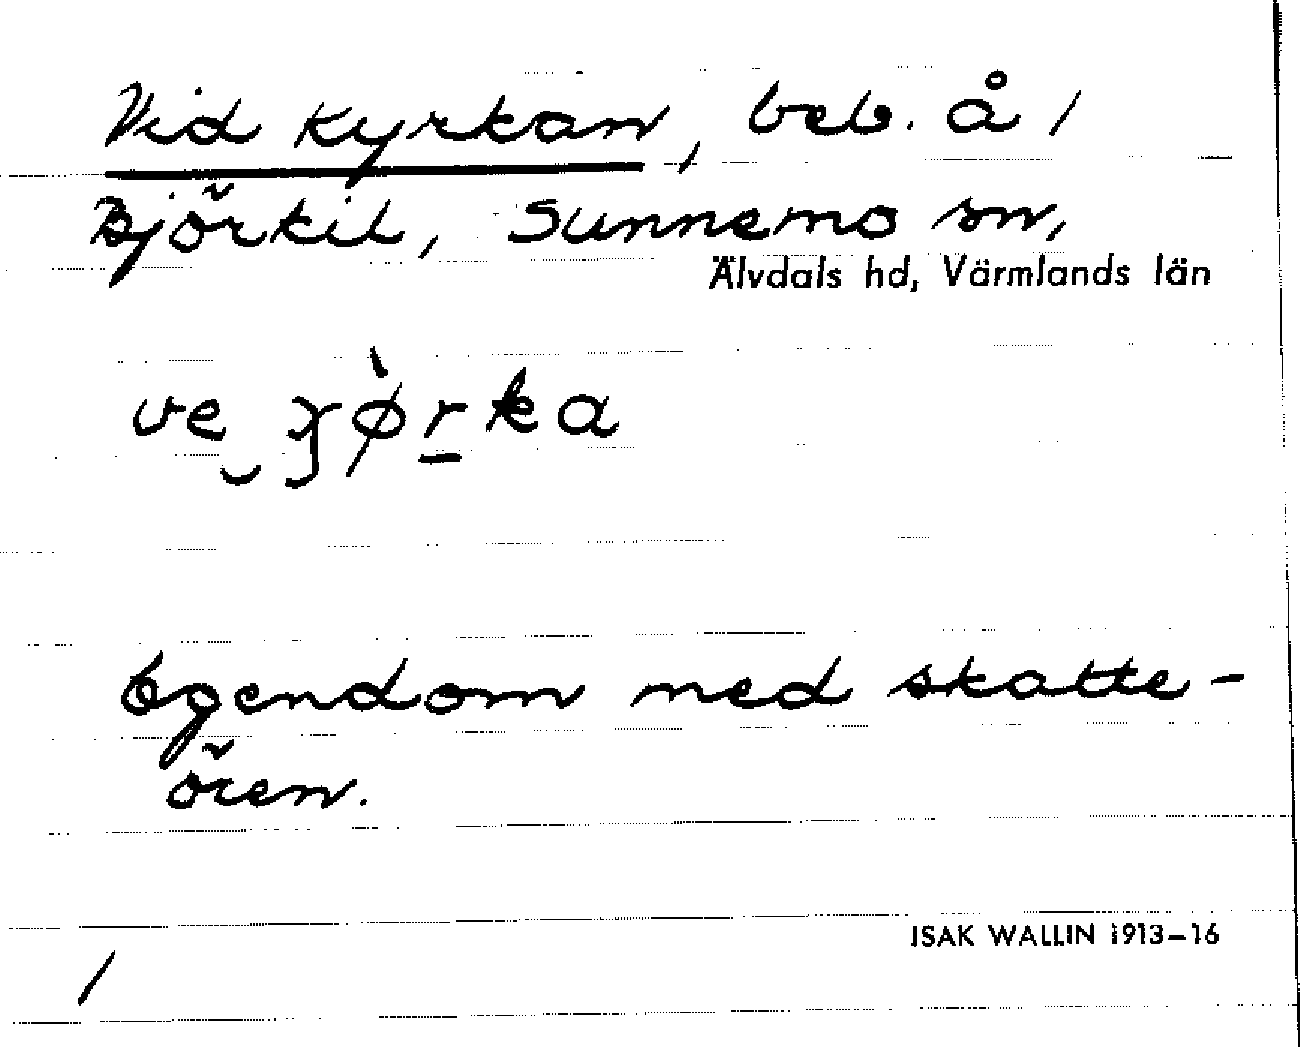 Vid kyrkan, beb. å 1
Björkil, Sunnemo sn,
Älvdals hd, Värmlands län
Egendom med skatte-
ören.
ISAK WALLIN 1913–16
1